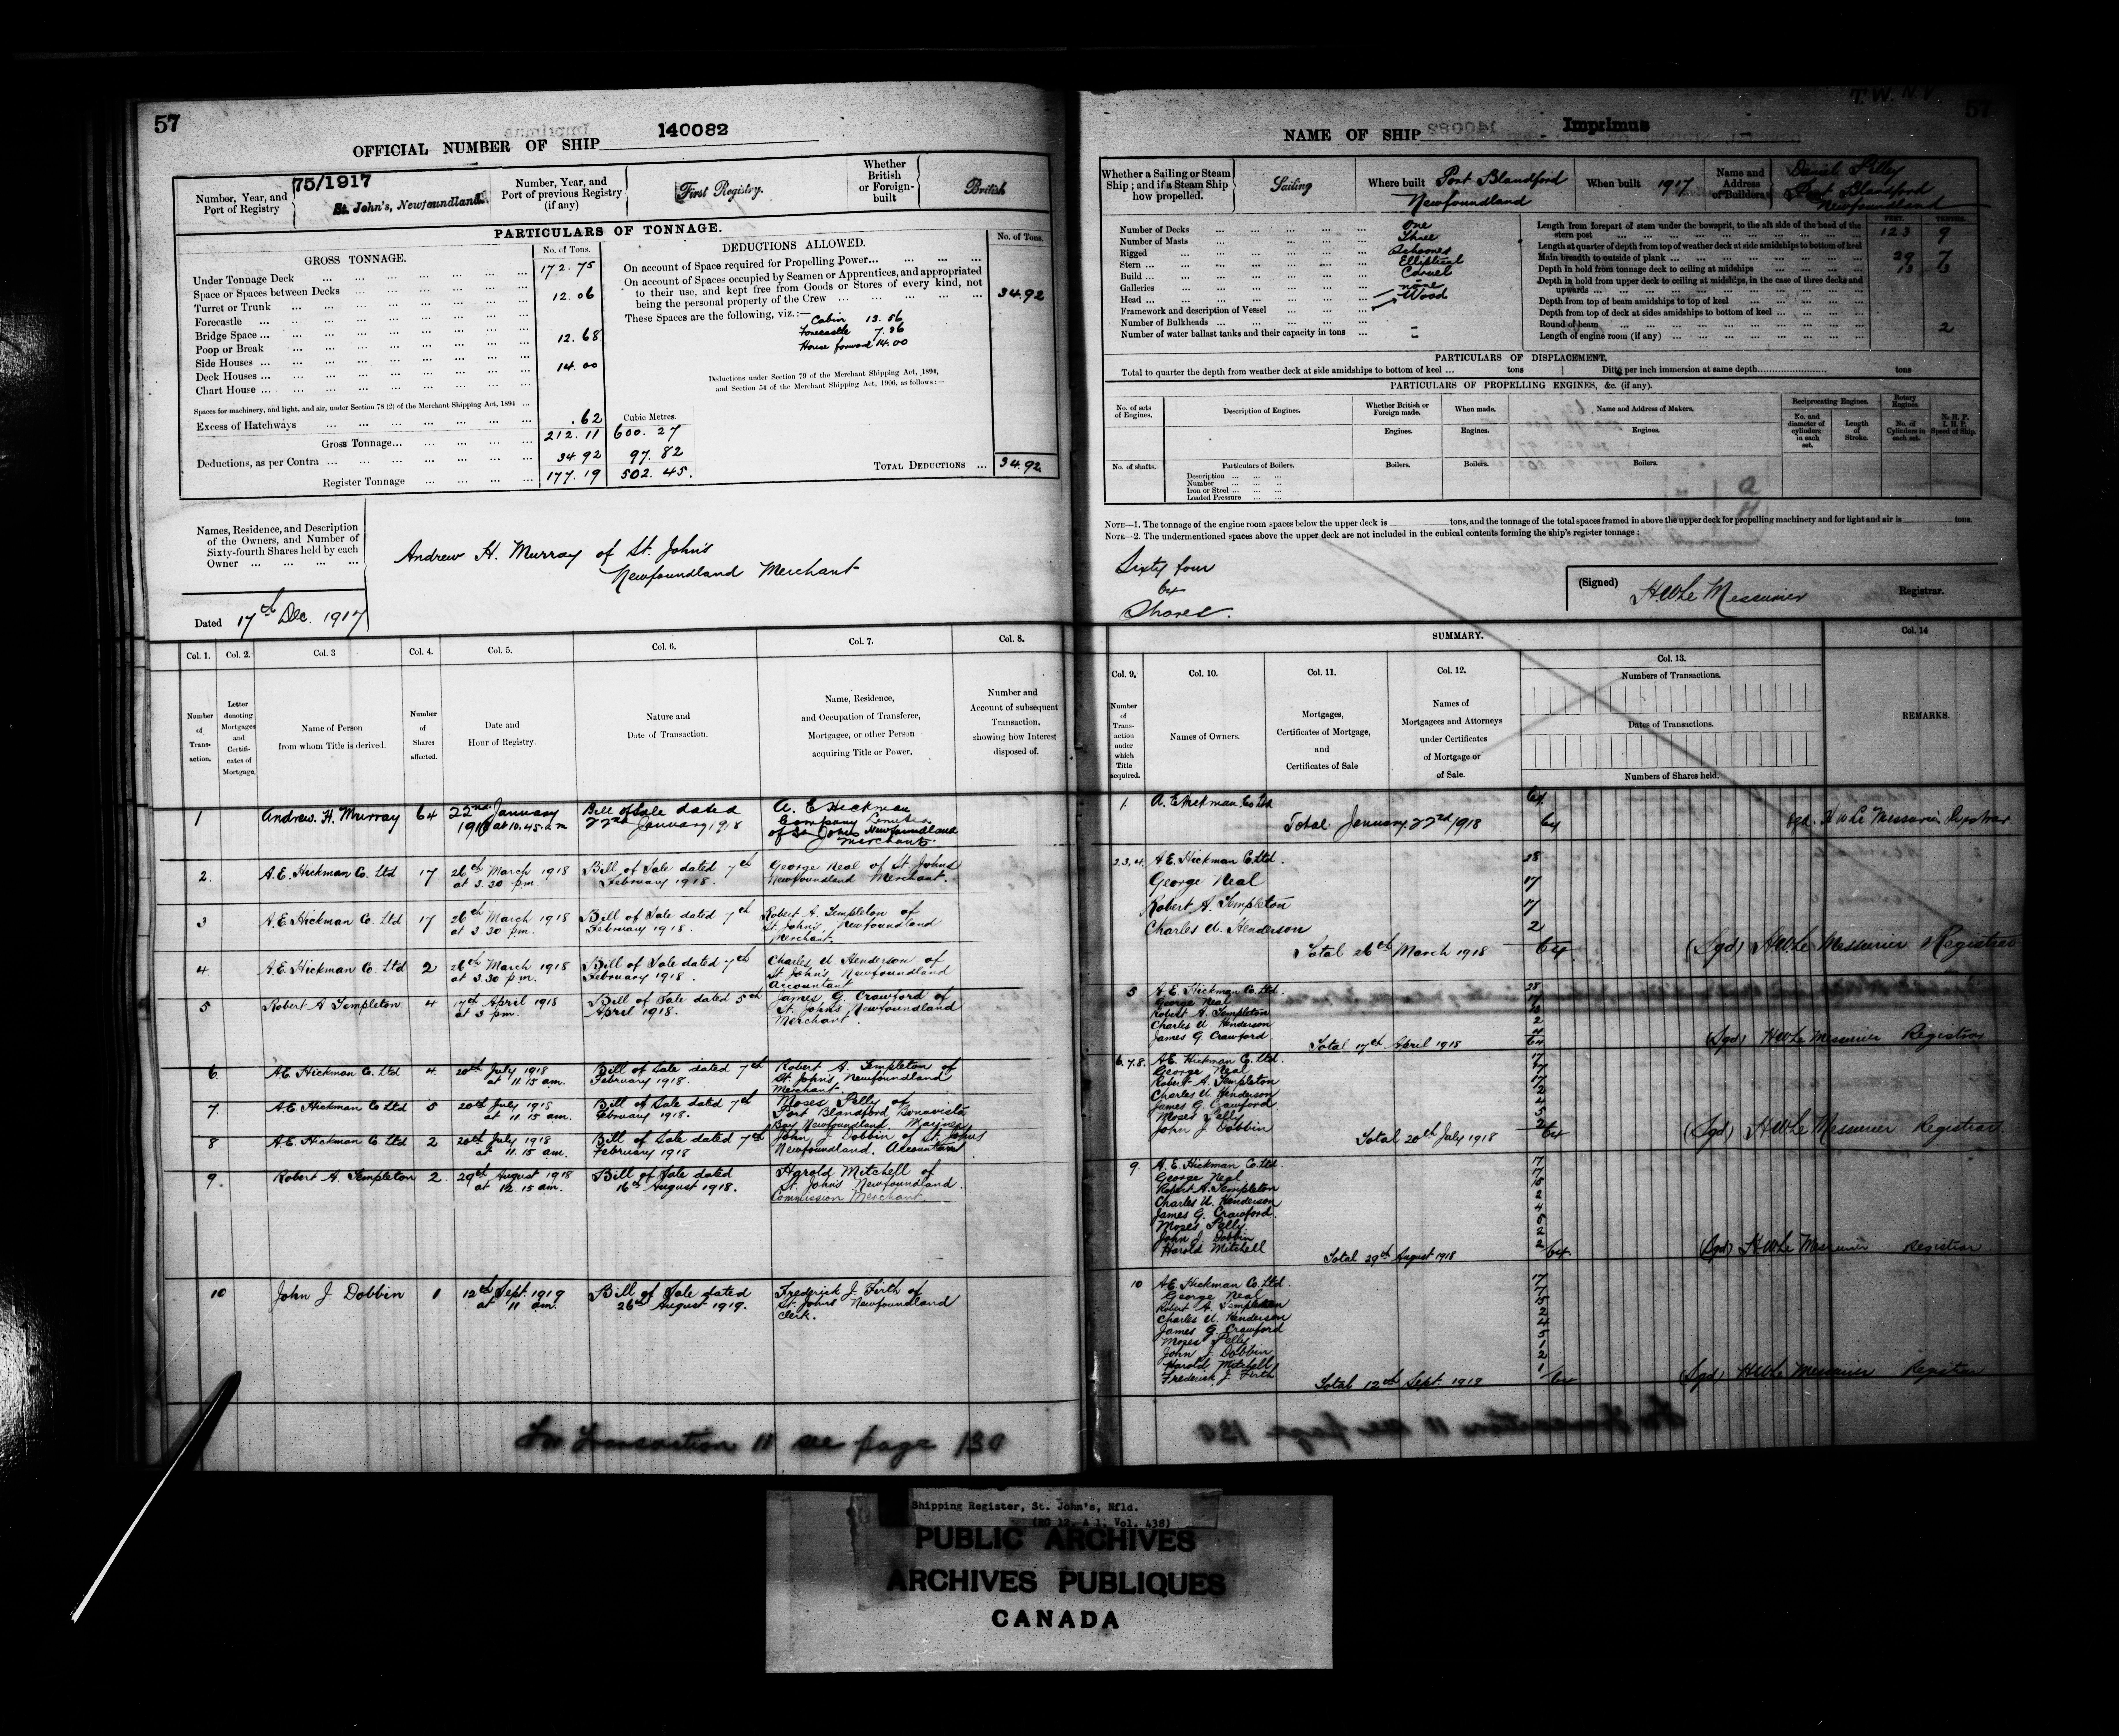 57
OFFICIAL NUMBER OF SHIP 140082
Number, Year, and Port of Registry
75/1917
St. John's, Newfoundland
Number, Year, and Port of previous Registry (if any)
First Registry.
Whether British or Foreign-built
British
PARTICULARS OF TONNAGE.
GROSS TONNAGE.
No. of Tons.
Under Tonnage Deck ... 172.75
Space or Spaces between Decks
Turret or Trunk ... 12.06
Forecastle ...
Bridge Space ...
Poop or Break ... 12.68
Side Houses ...
Deck Houses ... 14.00
Chart House ...
Spaces for machinery, and light, and air, under Section 78 (2) of the Merchant Shipping Act, 1894 ...
Excess of Hatchways ... .62
Cubic Metres.
Gross Tonnage... 212.11 600.27
Deductions, as per Contra ... 34.92 97.82
Register Tonnage ... 177.19 502.45.
DEDUCTIONS ALLOWED.
No. of Tons.
On account of Space required for Propelling Power...
On account of Spaces occupied by Seamen or Apprentices, and appropriated
to their use, and kept free from Goods or Stores of every kind, not
being the personal property of the Crew ... 34.92
These Spaces are the following, viz.:—
Cabin 13.56
Forecastle 7.36
House forward 14.00
Deductions under Section 79 of the Merchant Shipping Act, 1894,
and Section 54 of the Merchant Shipping Act, 1906, as follows:—
TOTAL DEDUCTIONS ... 34.92
Names, Residence, and Description
of the Owners, and Number of
Sixty-fourth Shares held by each
Owner ...
Andrew H. Murray of St. John's
Newfoundland Merchant
Dated 17th Dec. 1917
Col. 1. Col. 2. Col. 3 Col. 4. Col. 5. Col. 6. Col. 7. Col. 8.
Number of Transaction.
Letter denoting Mortgages and Certificates of Mortgage.
Name of Person from whom Title is derived.
Number of Shares affected.
Date and Hour of Registry.
Nature and Date of Transaction.
Name, Residence, and Occupation of Transferee, Mortgagee, or other Person acquiring Title or Power.
Number and Account of subsequent Transaction, showing how Interest disposed of.
1 Andrew. H. Murray 64 22nd January 1918 at 10.45 a m Bill of Sale dated 22nd January 1918 A. E Hickman Company Limited of St Johns Newfoundland Merchants.
2. A.E. Hickman Co. Ltd 17 26th March 1918 at 3.30 pm Bill of Sale dated 7th February 1918. George Neal of St. Johns Newfoundland Merchant.
3 A.E Hickman Co. Ltd 17 26th March 1918 at 3.30 pm. Bill of Sale dated 7th February 1918. Robert A. Templeton of St. John's, Newfoundland Merchant.
4. A.E. Hickman Co. Ltd 2 26th March 1918 at 3.30 pm. Bill of Sale dated 7th February 1918. Charles U. Henderson of St John's, Newfoundland Accountant
5 Robert A Templeton 4 17th April 1918 at 3 pm. Bill of Sale dated 5th April 1918. James G. Crawford of St. John's Newfoundland Merchant.
6. A.E. Hickman Co. Ltd 4. 20th July 1918 at 11 15 am. Bill of Sale dated 7th February 1918. Robert A. Templeton of St. John's, Newfoundland Merchant
7. A.E. Hickman Co Ltd 5 20th July 1918 at 11.15 am. Bill of Sale dated 7th February 1918. Moses Pelly of Port Blandford Bonavista Bay Newfoundland. Mariner
8 A.E. Hickman Co. Ltd 2 20th July 1918 at 11.15 am. Bill of Sale dated 7th February 1918 John J. Dobbin of St. Johns Newfoundland. Accountant
9. Robert A. Templeton 2. 29th August 1918 at 12.15 am. Bill of Sale dated 16th August 1918. Harold Mitchell of St. John's Newfoundland. Commission Merchant.
10 John J. Dobbin 1 12th Sept. 1919 at 11 am. Bill of Sale dated 26th August 1919. Frederick J. Firth of St. John's Newfoundland Clerk.
For Transaction 11 see page 130
T. W. N.
57
NAME OF SHIP Imprimus
Whether a Sailing or Steam Ship; and if a Steam Ship how propelled.
Sailing
Where built Port Blandford Newfoundland
When built 1917
Name and Address of Builders
Port Blandford
Newfoundland
Number of Decks ... One
Number of Masts ... Three
Rigged ... Schooner
Stern ... Elliptical
Build ... Carvel
Galleries ... none
Head ...
Framework and description of Vessel ... Wood
Number of Bulkheads ...
Number of water ballast tanks and their capacity in tons ...
FEET. TENTHS.
Length from forepart of stem under the bowsprit, to the aft side of the head of the stern post ... 123 9
Length at quarter of depth from top of weather deck at side amidships to bottom of keel
Main breadth to outside of plank ... 29 7
Depth in hold from tonnage deck to ceiling at midships
Depth in hold from upper deck to ceiling at midships, in the case of three decks and upwards ...
Depth from top of beam amidships to top of keel
Depth from top of deck at sides amidships to bottom of keel ...
Round of beam ...
Length of engine room (if any) ...
PARTICULARS OF DISPLACEMENT.
Total to quarter the depth from weather deck at side amidships to bottom of keel ... tons | Ditto per inch immersion at same depth... tons
PARTICULARS OF PROPELLING ENGINES, &c. (if any).
No. of sets of Engines.
Description of Engines.
Whether British or Foreign made.
When made.
Name and Address of Makers.
Reciprocating Engines.
Rotary Engines
No. and diameter of cylinders in each set.
Length of Stroke.
No. of Cylinders in each set.
N. H. P. I. H. P. Speed of Ship.
Engines. Engines. Engines.
No. of shafts. Particulars of Boilers. Boilers. Boilers. Boilers.
Description ...
Number ...
Iron or Steel ...
Loaded Pressure ...
NOTE—1. The tonnage of the engine room spaces below the upper deck is ______ tons, and the tonnage of the total spaces framed in above the upper deck for propelling machinery and for light and air is ______ tons.
NOTE—2. The undermentioned spaces above the upper deck are not included in the cubical contents forming the ship's register tonnage:
Sixty four
64
Shares.
(Signed) HW Le Messurier Registrar.
SUMMARY.
Col. 9. Col. 10. Col. 11. Col. 12. Col. 13. Col. 14
Number of Transaction under which Title acquired.
Names of Owners.
Mortgages, Certificates of Mortgage, and Certificates of Sale
Names of Mortgagees and Attorneys under Certificates of Mortgage or of Sale.
Numbers of Transactions.
Dates of Transactions.
Numbers of Shares held.
REMARKS.
1. A. E Hickman. Co Ltd 64
Total January 22nd/1918 64 sgd. H W Le Messurier Registrar
2.3.4. A.E. Hickman Co. Ltd. 28
George Neal 17
Robert A. Templeton 17
Charles U. Henderson 2
Total 26th March 1918 64 (Sgd) HW Le Messurier Registrar
5 A. E. Hickman Co. Ltd. 28
George Neal 17
Robert A. Templeton 13
Charles U. Henderson 2
James G. Crawford 4
Total 17th April 1918 64 (Sgd) HW Le Messurier Registrar
6.7.8. A.E. Hickman Co. Ltd. 17
George Neal 17
Robert A. Templeton 17
Charles U. Henderson 2
James G. Crawford 4
Moses Pelly 5
John J. Dobbin 2
Total 20th July 1918 64 (Sgd) HW Le Messurier Registrar.
9. A. E. Hickman Co. Ltd. 17
George Neal 17
Robert A. Templeton 15
Charles U. Henderson 2
James G. Crawford. 4
Moses Pelly. 5
John J. Dobbin 2
Harold Mitchell 2
Total 29th August 1918 64 (Sgd) HW Le Messurier Registrar
10 A.E. Hickman Co. Ltd. 17
George Neal 17
Robert A. Templeton 15
Charles U. Henderson 2
James G. Crawford 4
Moses Pelly 5
John J. Dobbin 1
Harold Mitchell 2
Frederick J. Firth 1
Total 12th Sept. 1919 64 (Sgd) HW Le Messurier Registrar
Shipping Register, St. John's, Nfld.
(RG 12, A 1, Vol. 438)
PUBLIC ARCHIVES
ARCHIVES PUBLIQUES
CANADA